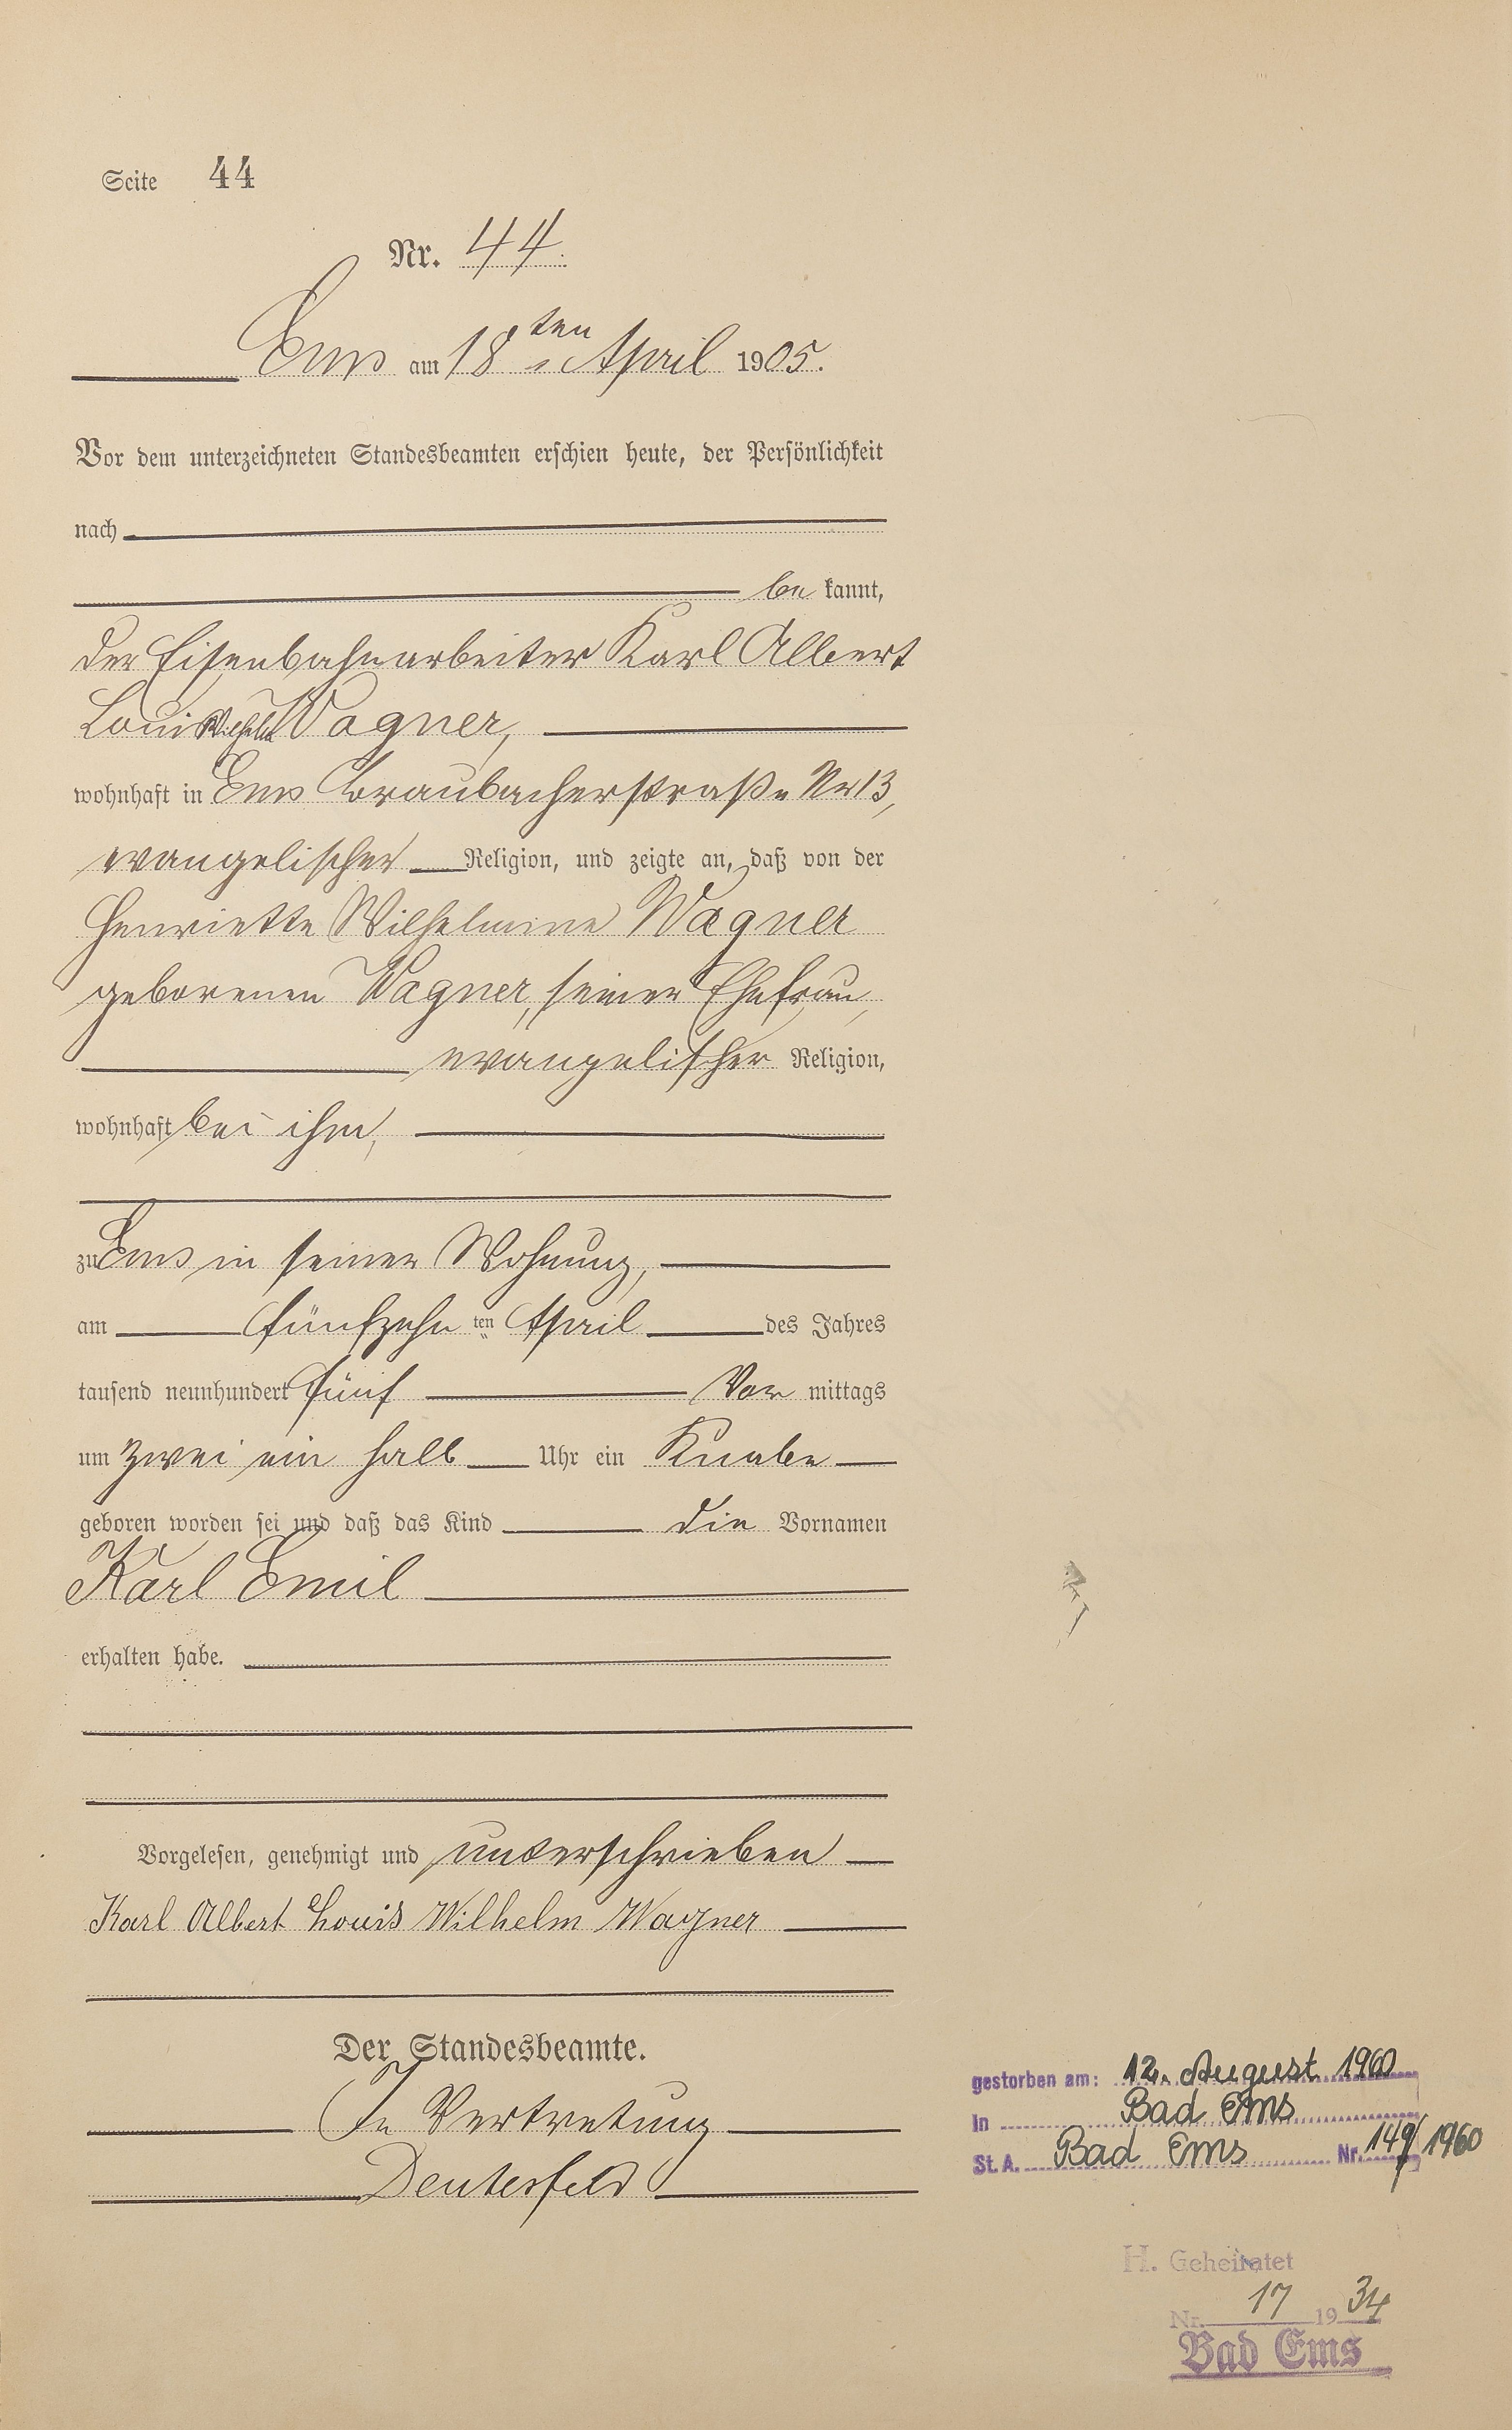 Seite 44
Nr. 44.
Ems am 18ten April 1905.
Vor dem unterzeichneten Standesbeamten erschien heute, der Persönlichkeit
nach
be kannt,
der Eisenbahnarbeiter Karl Albert
Louis Wilhelm Wagner,
wohnhaft in Ems Braubacherstraße Nr 13,
evangelischer Religion, und zeigte an, daß von der
Henriette Wilhelmine Wagner
geborenen Wagner, seiner Ehefrau,
evangelischer Religion,
wohnhaft bei ihm,
zu Ems in seiner Wohnung,
am fünfzehn ten April des Jahres
tausend neunhundert fünf Vor mittags
um zwei ein halb Uhr ein Knabe
geboren worden sei und daß das Kind die Vornamen
Karl Emil
erhalten habe.
Vorgelesen, genehmigt und unterschrieben
Karl Albert Louis Wilhelm Wagner
Der Standesbeamte.
In Vertretung
Deutesfeld
gestorben am: 12. August 1960
In Bad Ems
St. A. Bad Ems Nr. 149/1960
H. Geheiratet
Nr. 17 1934
Bad Ems